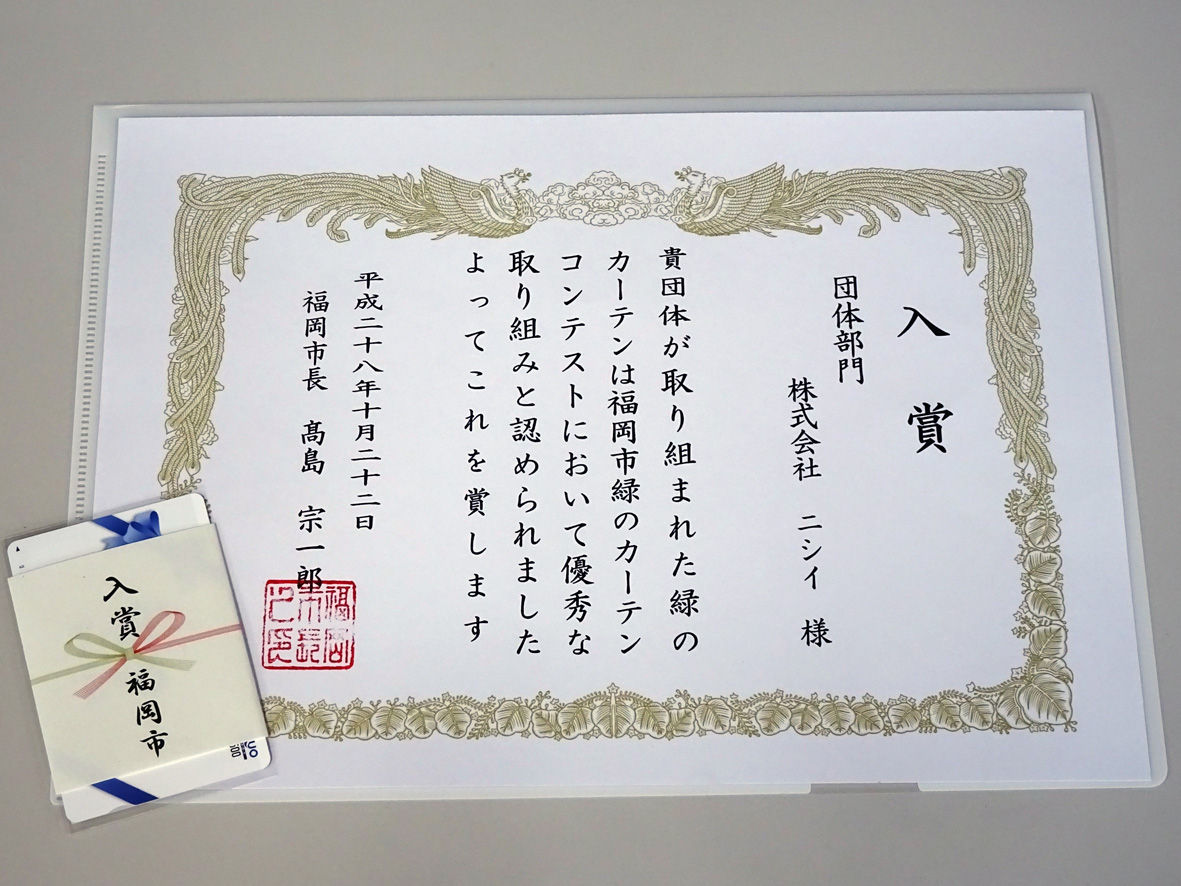 入賞
団体部門
株式会社 ニシイ 様
貴団体が取り組まれた緑の
カーテンは福岡市緑のカーテン
コンテストにおいて優秀な
取り組みと認められました
よってこれを賞します
平成二十八年十月二十二日
福岡市長 髙島 宗一郎
福岡市長之印
入賞
福岡市